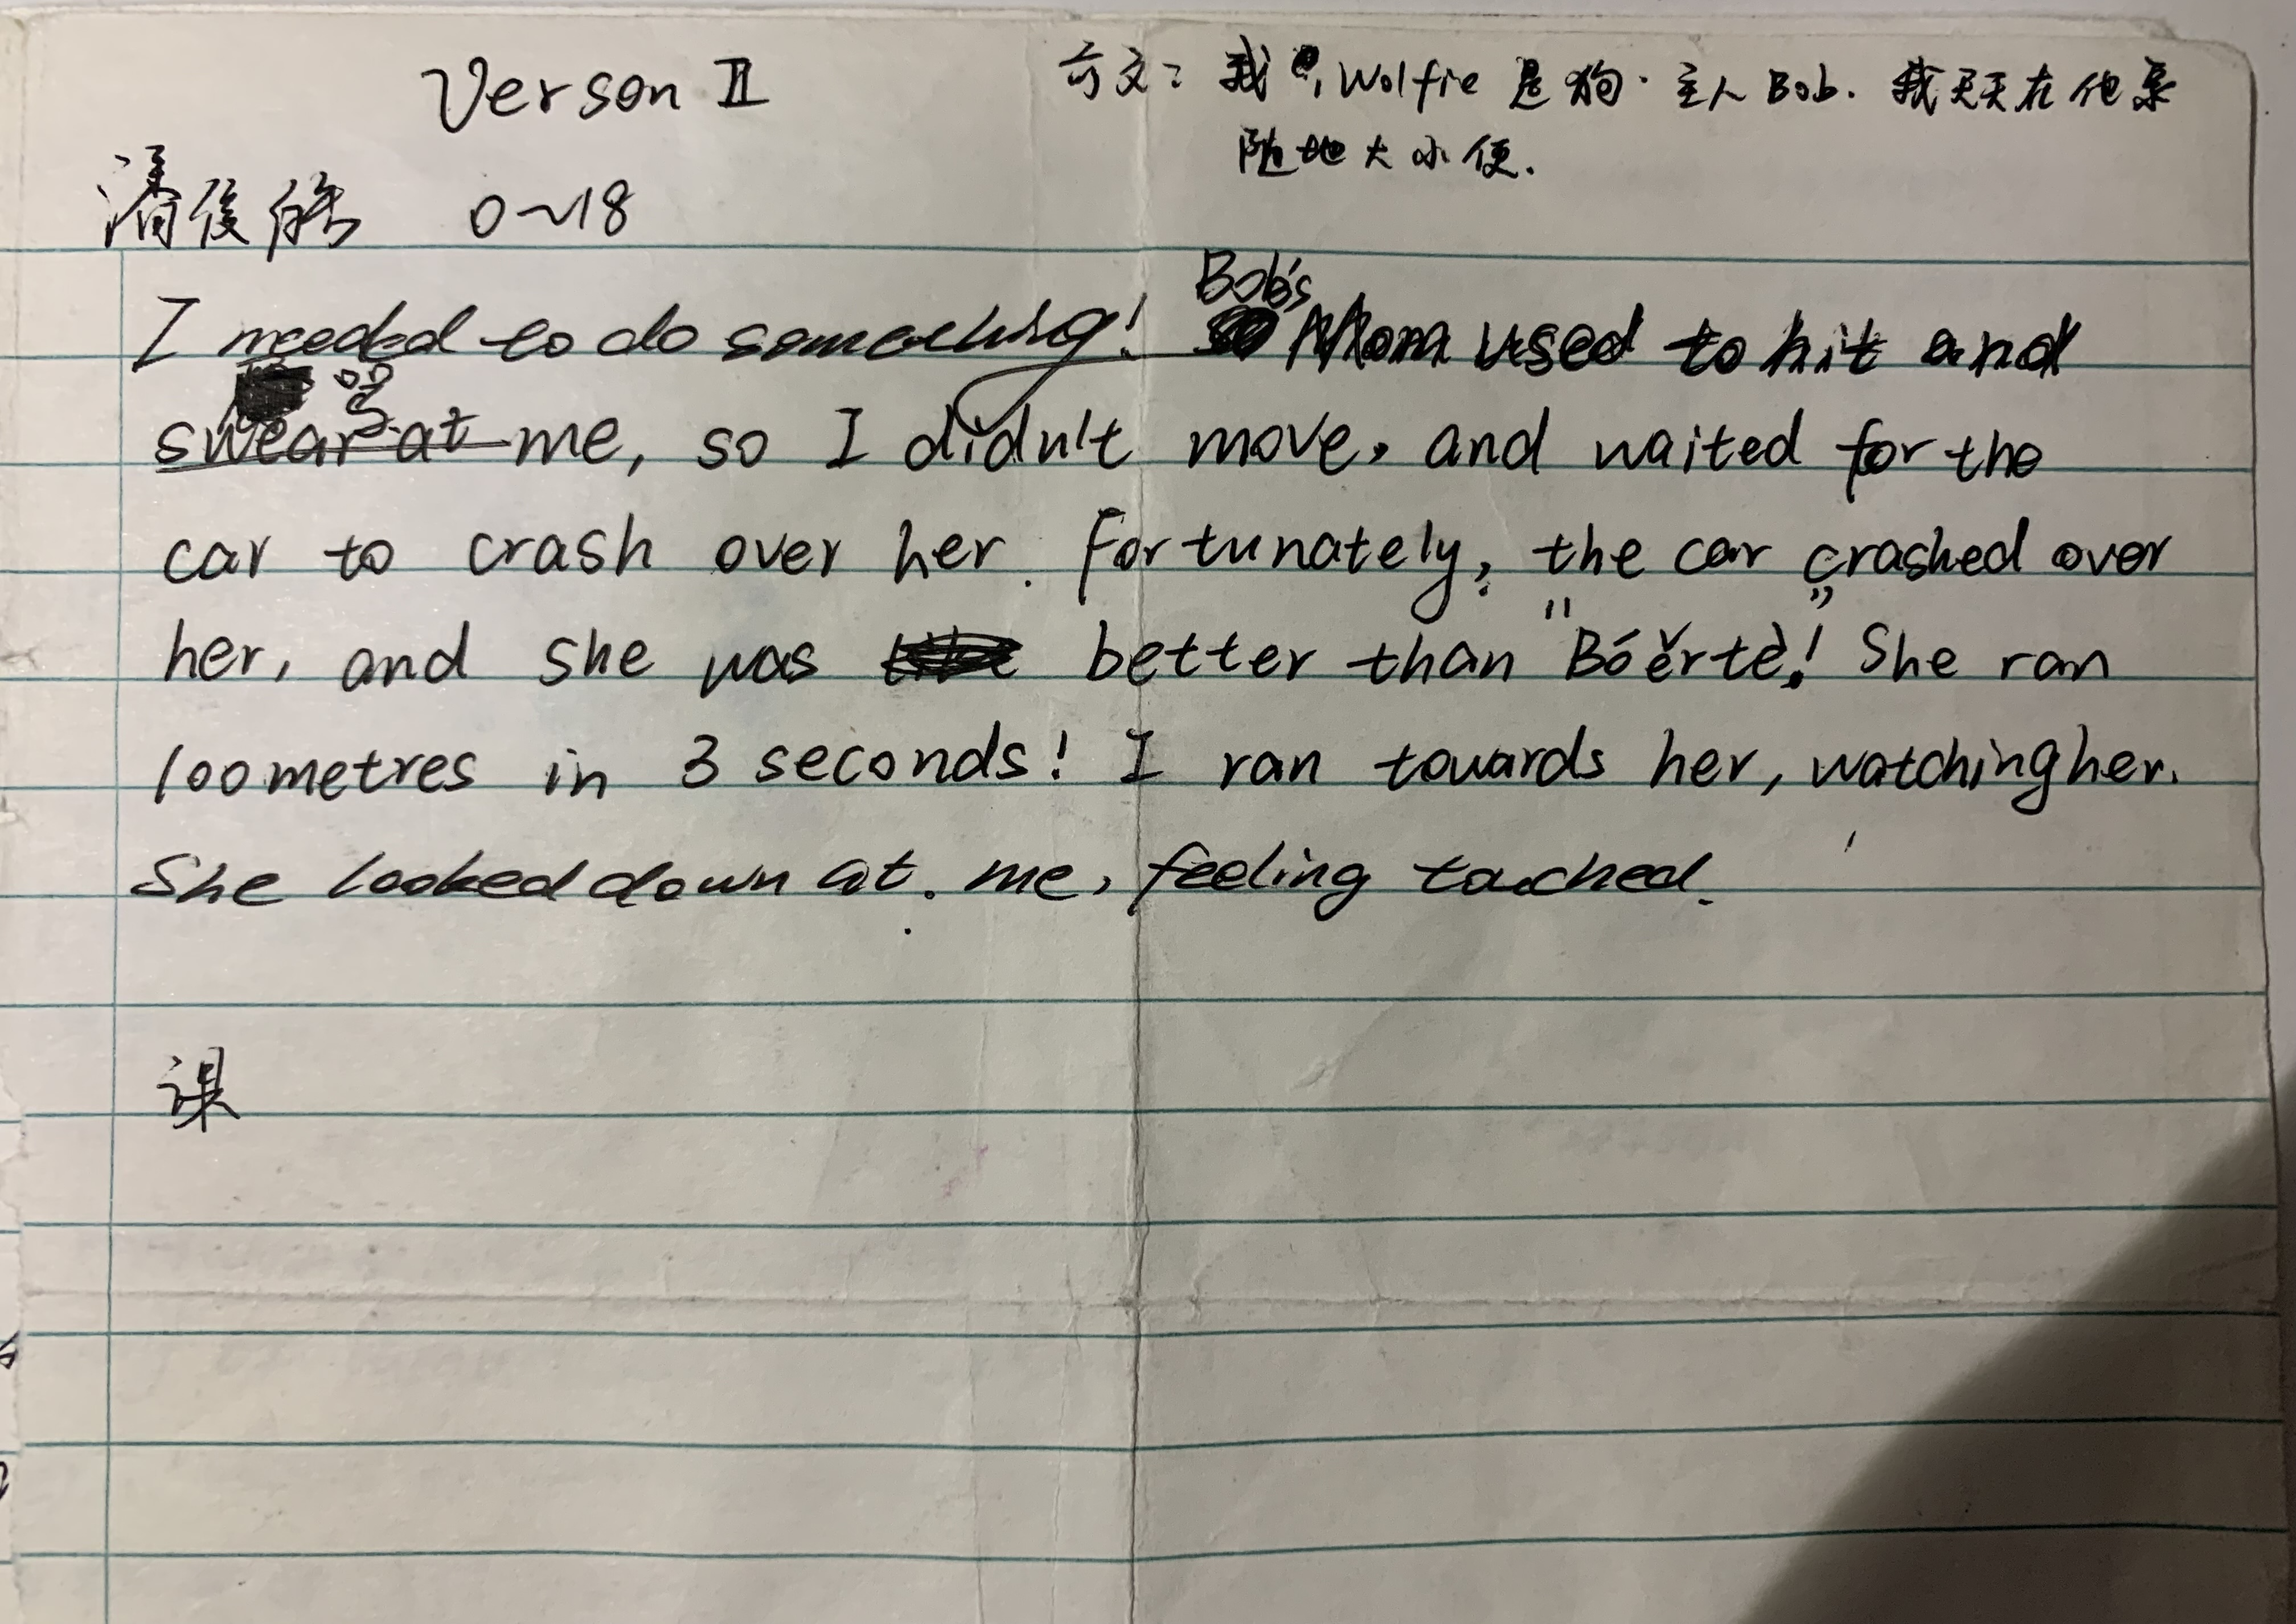 Verson II
前文: 我, Wolfie 是狗. 主人 Bob. 我天天在他家
随地大小便.
潘俊能 0~18
I needed to do something! Bob's Mom used to hit and
骂
swear at me, so I didn't move, and waited for the
car to crash over her. Fortunately, the car crashed over
her, and she was better than "Bóěrtè"! She ran
100metres in 3 seconds! I ran towards her, watching her.
She looked down at me, feeling touched.
课